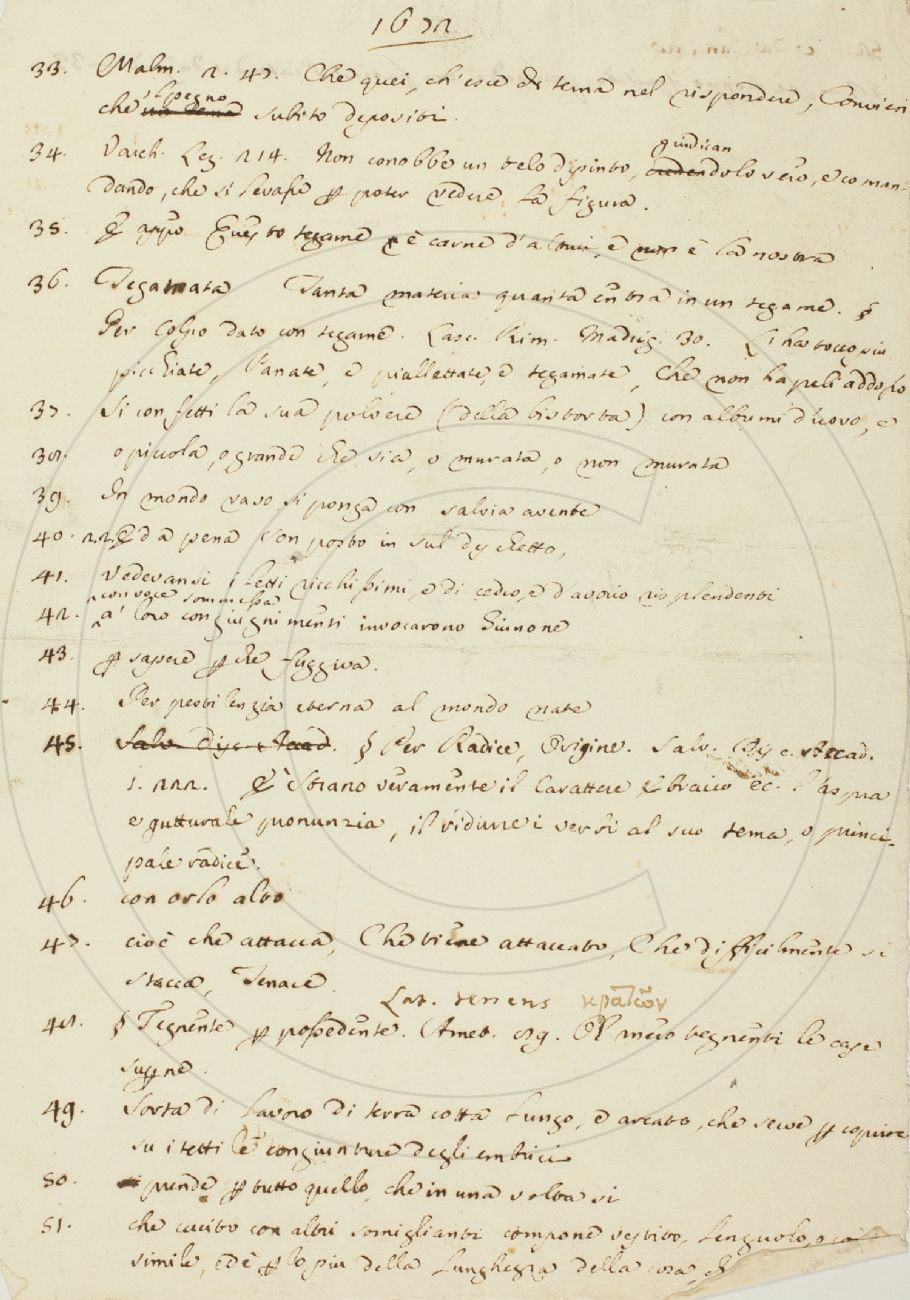 1672
33. Malm. 2. 47. Che quei, ch'esce di tema nel rispondere, Convien
che 'l pegno un pena subito depositi.
34. Varch. Lez. 214. Non conobbe un velo dipinto, giudican credendolo vero, e coman-
dando, che si levasse p poter vedere la figura.
35. E appo Questo tegame è carne d'altrui, e non è la nostra
36. Tegamata Tanta materia quanta entra in un tegame. §
Per Colpo dato con tegame. Lasc. Rim. Madrig. 30. L'ha tocco piu
picchiate, Panate, e piallettate, e tegamate, Che non ha peli addosso
37. Si confetti la sua polvere (della bistorta) con albumi d'uovo, e
38. o piccola, o grande che sia, o murata, o non murata
39. In mondo vaso si ponga con salvia avente
40. 22. E da pena son posto in sul deschetto,
41. Vedevansi i letti ricchissimi, e di cedro, e d'avorio risplendenti
con voce sommessa
42. a' loro congiugnimenti invocarono Giunone
43. p sapere p che fuggiva.
44. Per pestilenzia eterna al mondo nate
45. Salv. Disc. Accad. § Per Radice, Origine. Salv. Disc. Accad.
1. 222. E' strano veramente il Carattere Ebraico ec. l'aspra
e gutturale pronunzia, il ridurre i versi al suo tema, o princi-
pale radice.
46. con orlo alto
47. cioè che attacca, Che tiene attaccato, Che difficilmente si
stacca, Tenace
Lat. tenens κρατῶν
48. § Tegnente p possedente. Amet. 89. Il mero tegnenti le case
supne.
49. Sorta di lavoro di terra cotta lungo, e arcato, che serve p copire
su i tetti le congiunture degli embrici
50. si prende p tutto quello, che in una volta si
51. che cucito con altri somiglianti compone vestito, lenzuolo, o
simile, ed è p lo piu della lunghezza della cosa,